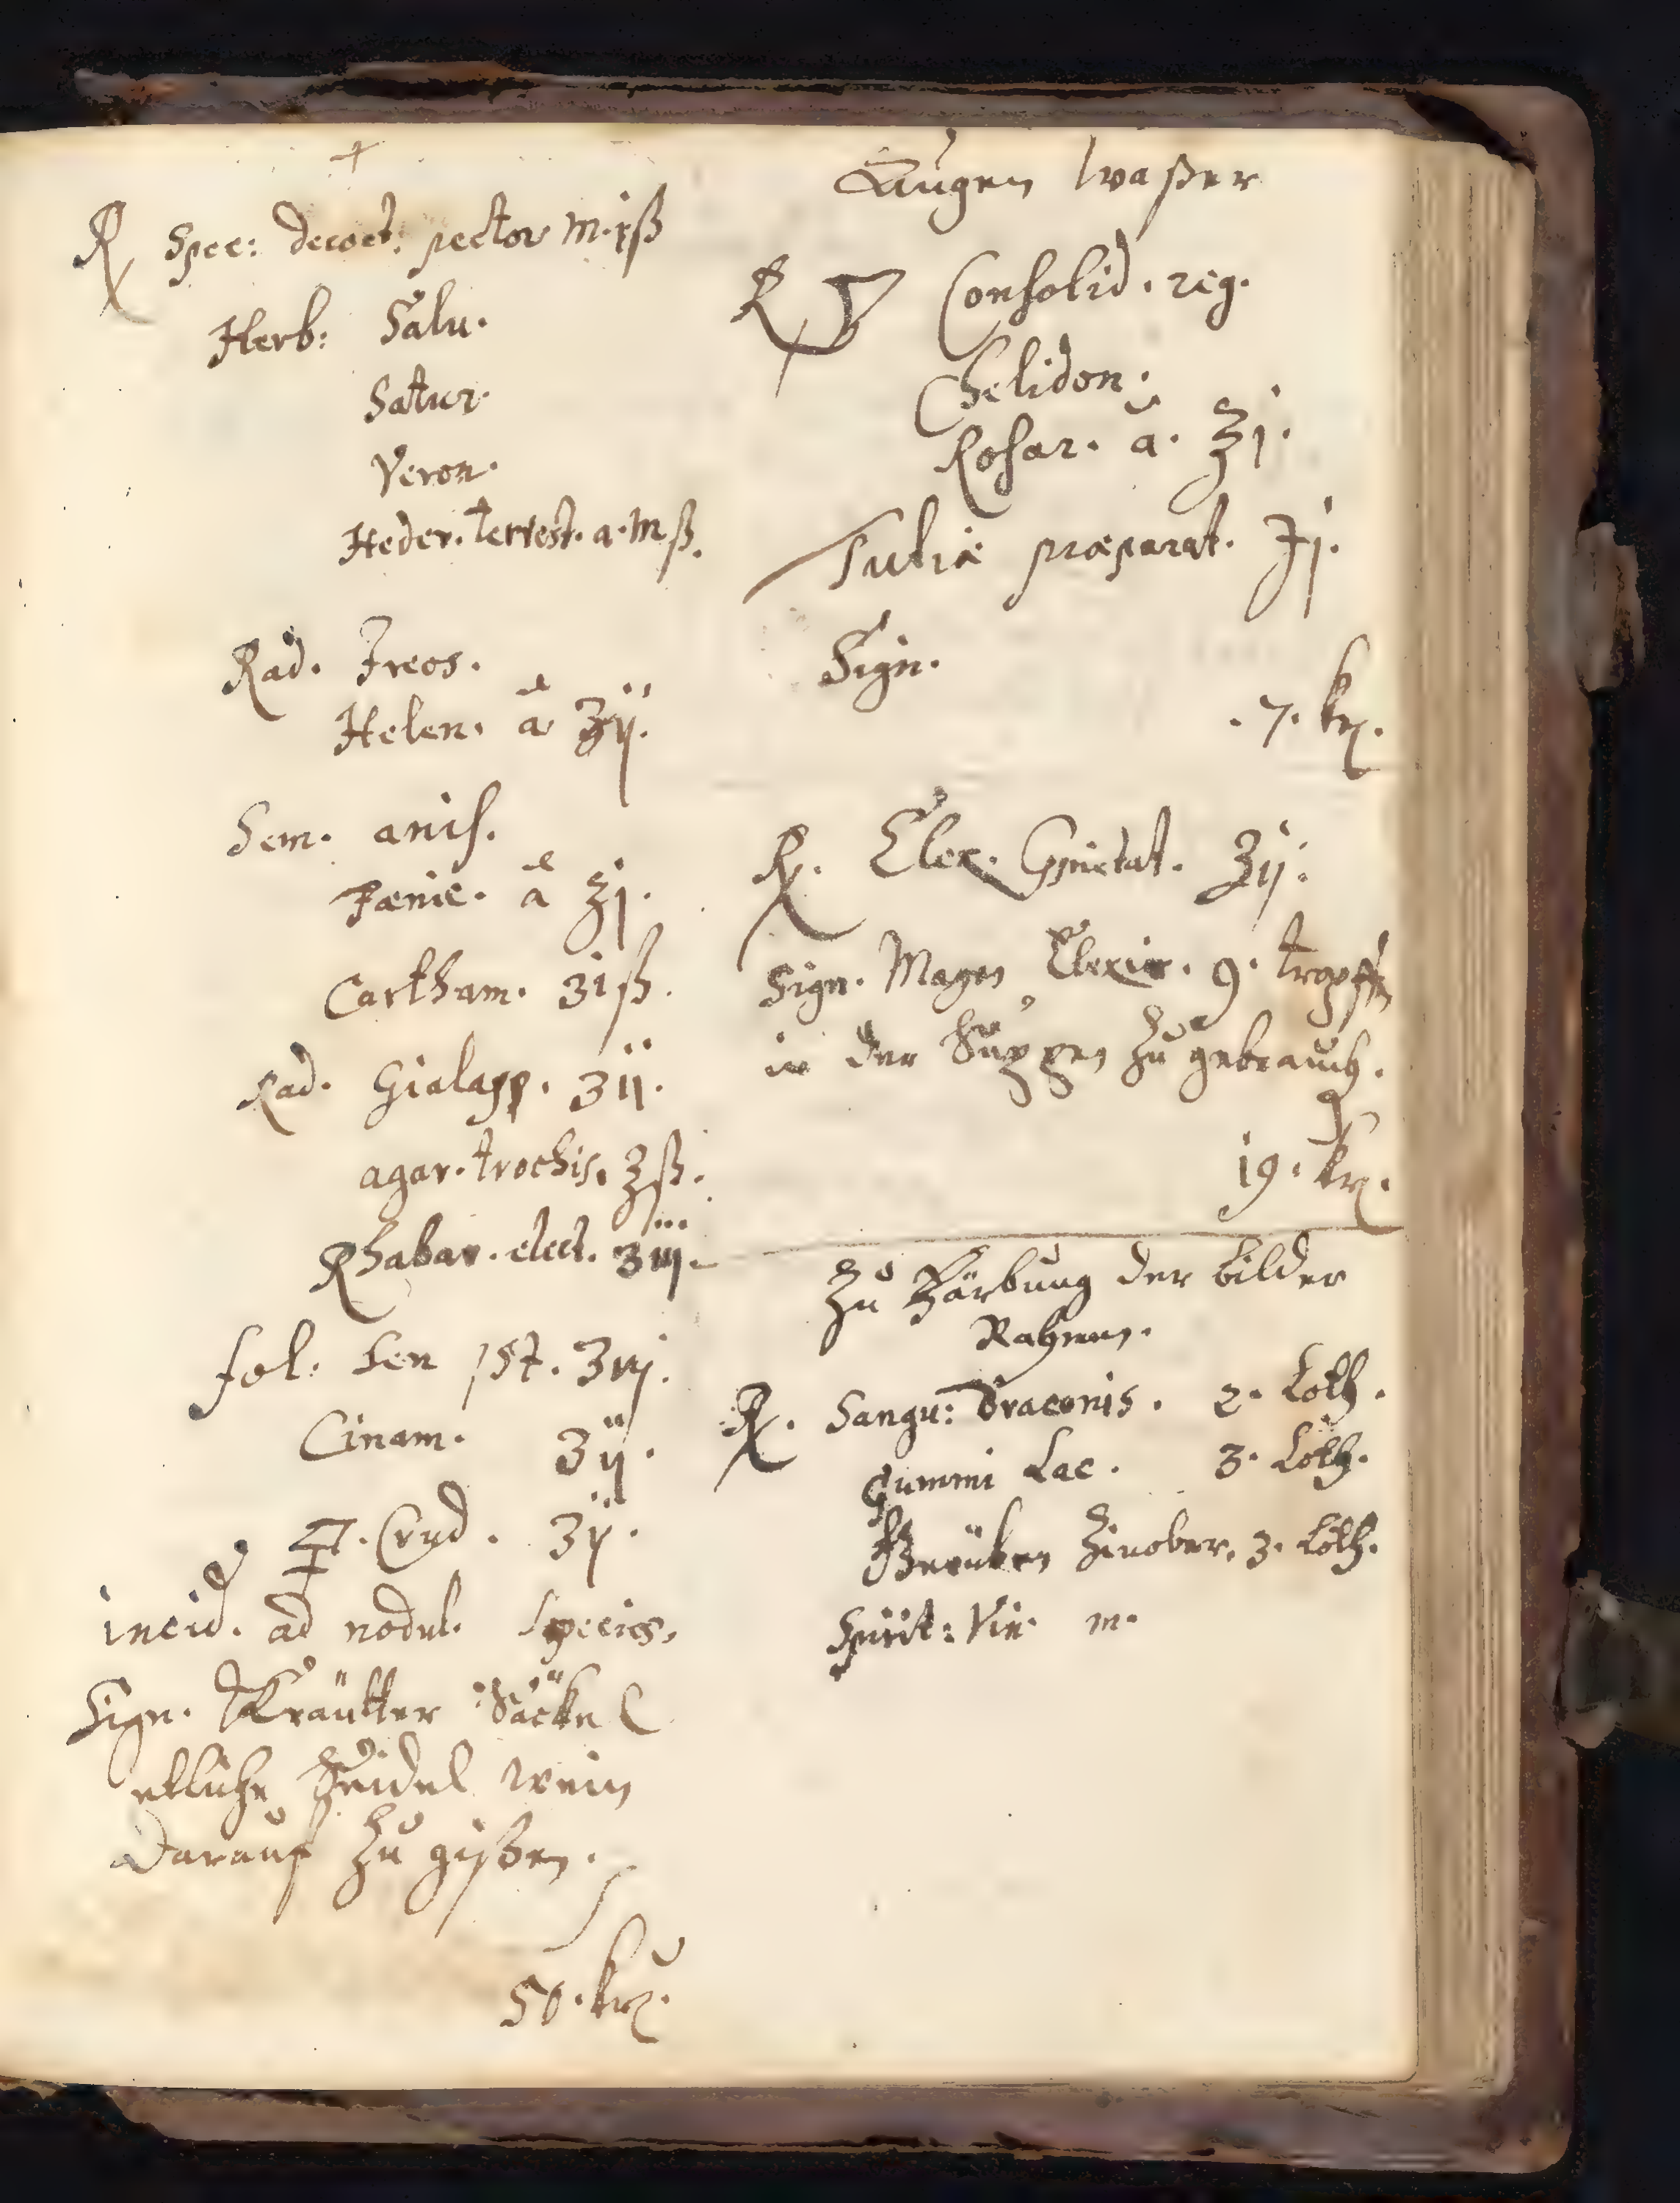 +
℞ Spec: decoct: pector m. jß
Herb: Salv.
Satur.
Veron.
Heder. terrest. a. m ß.
Rad. Ireos.
Helen. ā ʒij.
Sem. anis.
Fænic. ā ʒj.
Cartham. ʒiß.
Rad. Gialapp. ʒij.
agar. trochis. ʒß.
Rhabar. elect. ʒiij.
fol: Sen ʒiij.
Cinam. ʒij.
Crud. ʒij.
incid. ad nodul. species.
Sign. Kräutter Säckel
etliche Seidel wein
darauf zu gißen.
50. krz.
Augen waßer
℞ 🜄 Consolid. reg.
Chelidon.
Rosar. ā. ℥j.
Tutiæ præparat. ʒj.
Sign.
.7. krz.
℞. Elex. ʒij.
Sign. Magen Elexir. 9. tropffen
in der Suppen zu gebrauch.
19. krz.
Zu Färbung der bilder
Rahmen.
℞. Sangu: Draconis. 2. Loth.
Gummi Lac. 3. Loth.
Zinober. 3. Loth.
Spirit: Vin. m.